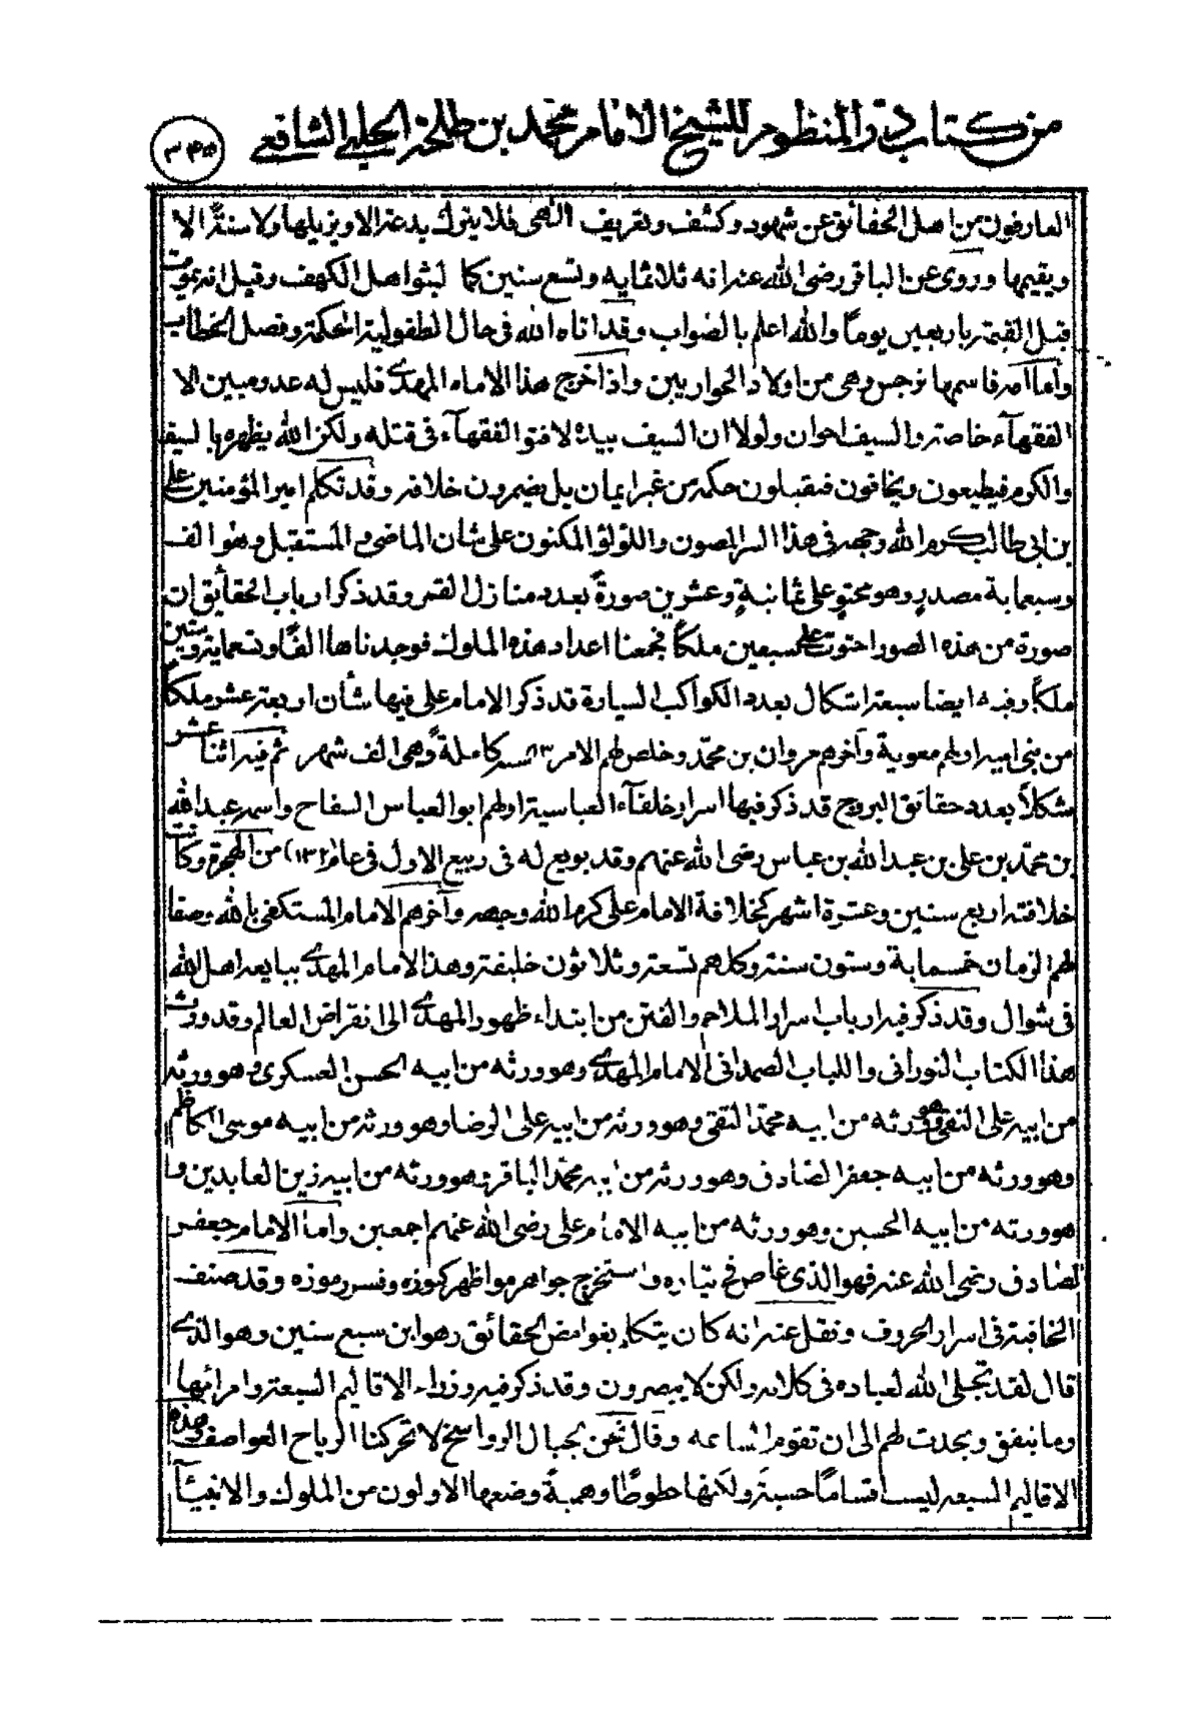 من كتاب در المنظوم للشيخ الامام محمد بن طلحة الحلبي الشافعي
العارفون من اهل الحقائق عن شهود وكشف وتعريف الهى فلا يترك بدعة الا ويزيلها ولا سنة الا
ويقيمها وروى عن الباقر رضى الله عنه انه ثلاثمايه وتسع سنين كما لبثوا اهل الكهف وقيل انه يموت
قبل القيمة باربعين يوماً والله اعلم بالصواب وقد اتاه الله فى حال الطفولية الحكمة وفصل الخطاب
واما امه فاسمها نرجس وهى من اولاد الحواريين واذا خرج هذا الامام المهدى فليس له عدو مبين الا
الفقهآء خاصة والسيف اخوان ولولا ان السيف بيده لافتو الفقهآء فى قتله ولكن الله يظهره بالسيف
والكرم فيطيعون ويخافون فيقبلون حكمه من غير ايمان بل يضمرون خلافه وقد تكلم امير المؤمنين على
بن ابى طالب كرم الله وجهه فى هذا السر المصون واللؤلؤ المكنون على شان الماضى والمستقبل وهو الف
وسبعماية مصدر وهو محتو على ثمانية وعشرين صورة بعدد منازل القمر وقد ذكر ارباب الحقائق ان
صورة من هذه الصور احتوت على سبعين ملكاً فجمعنا اعداد هذه الملوك فوجدناها الفاً وتسعماية وستين
ملكاً وفيه ايضا سبعة اشكال بعدد الكواكب السيارة قد ذكر الامام على فيها شأن اربعة عشر ملكاً
من بنى امية اولهم معوية وآخرهم مروان بن محمد وخلص لهم الامر ٨٣ سنه كاملة وهى الف شهر ثم فيه اثنا عشر
شكلاً بعدد حقائق البروج قد ذكر فيها اسرار خلفآء العباسية اولهم ابو العباس السفاح واسمه عبد الله
بن محمد بن على بن عبد الله بن عباس رضى الله عنهم وقد بويع له فى ربيع الاول فى عام (١٣٢) من الهجرة وكانت
خلافته اربع سنين وعشرة اشهر كخلافة الامام على كرم الله وجهه وآخرهم الامام المستكفى بالله وصفا
لهم الزمان خمسماية وستون سنة وكلهم تسعة وثلاثون خليفة وهذا الامام المهدى يبايعه اهل الله
فى شوال وقد ذكر فيه ارباب اسرار الملاحم والفتن من ابتداء ظهور المهدى الى انقراض العالم وقد ورث
هذا الكتاب النورانى واللباب الصمدانى الامام المهدى وهو ورثه من ابيه الحسن العسكرى وهو ورثه
من ابيه على النقى وهو ورثه من ابيه محمد التقى وهو ورثه من ابيه على الرضا وهو ورثه من ابيه موسى الكاظم
وهو ورثه من ابيه جعفر الصادق وهو ورثه من ابيه محمد الباقر وهو ورثه من ابيه زين العابدين و
هو ورثه من ابيه الحسين وهو ورثه من ابيه الامام على رضى الله عنهم اجمعين واما الامام جعفر
الصادق رضى الله عنه فهو الذى غاص فى تياره واستخرج جواهره واظهر كنوزه وفسر رموزه وقد صنف
الخافية فى اسرار الحروف ونقل عنه انه كان يتكلم بغوامض الحقائق وهو ابن سبع سنين وهو الذى
قال لقد تجلى الله لعباده فى كلامه ولكن لا يبصرون وقد ذكر فيه وزراء الاقاليم السبعة وامرائها
وما يتفق ويحدث لهم الى ان تقوم الساعه وقال نحن كجبال الرواسخ لا تحركنا الرياح العواصف وهذه
الاقاليم السبعه ليست اقساماً حسية ولكنها خطوطاً وهمية وضعها الاولون من الملوك والانبيآء